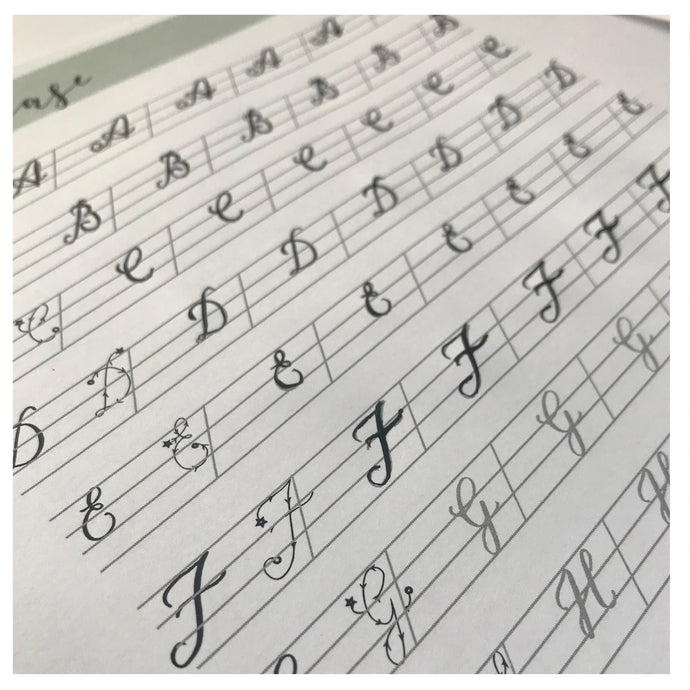 ase
A A A A A
B B B B B B
C C C C C C C
D D D D D D D D
E E E E E E E E
F F F F F F F
G G G G
H H